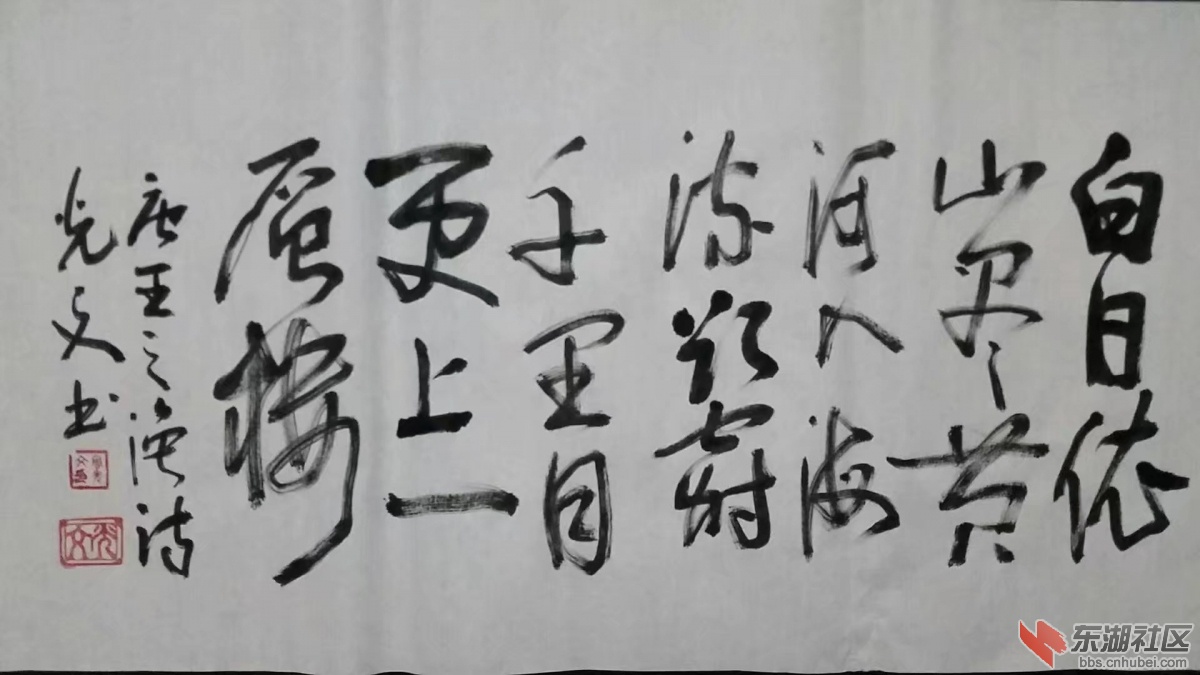 白日依
山尽黄
河入海
流欲穷
千里目
更上一
层楼
唐王之涣诗
光文书
光文
东湖社区
bbs.cnhubei.com